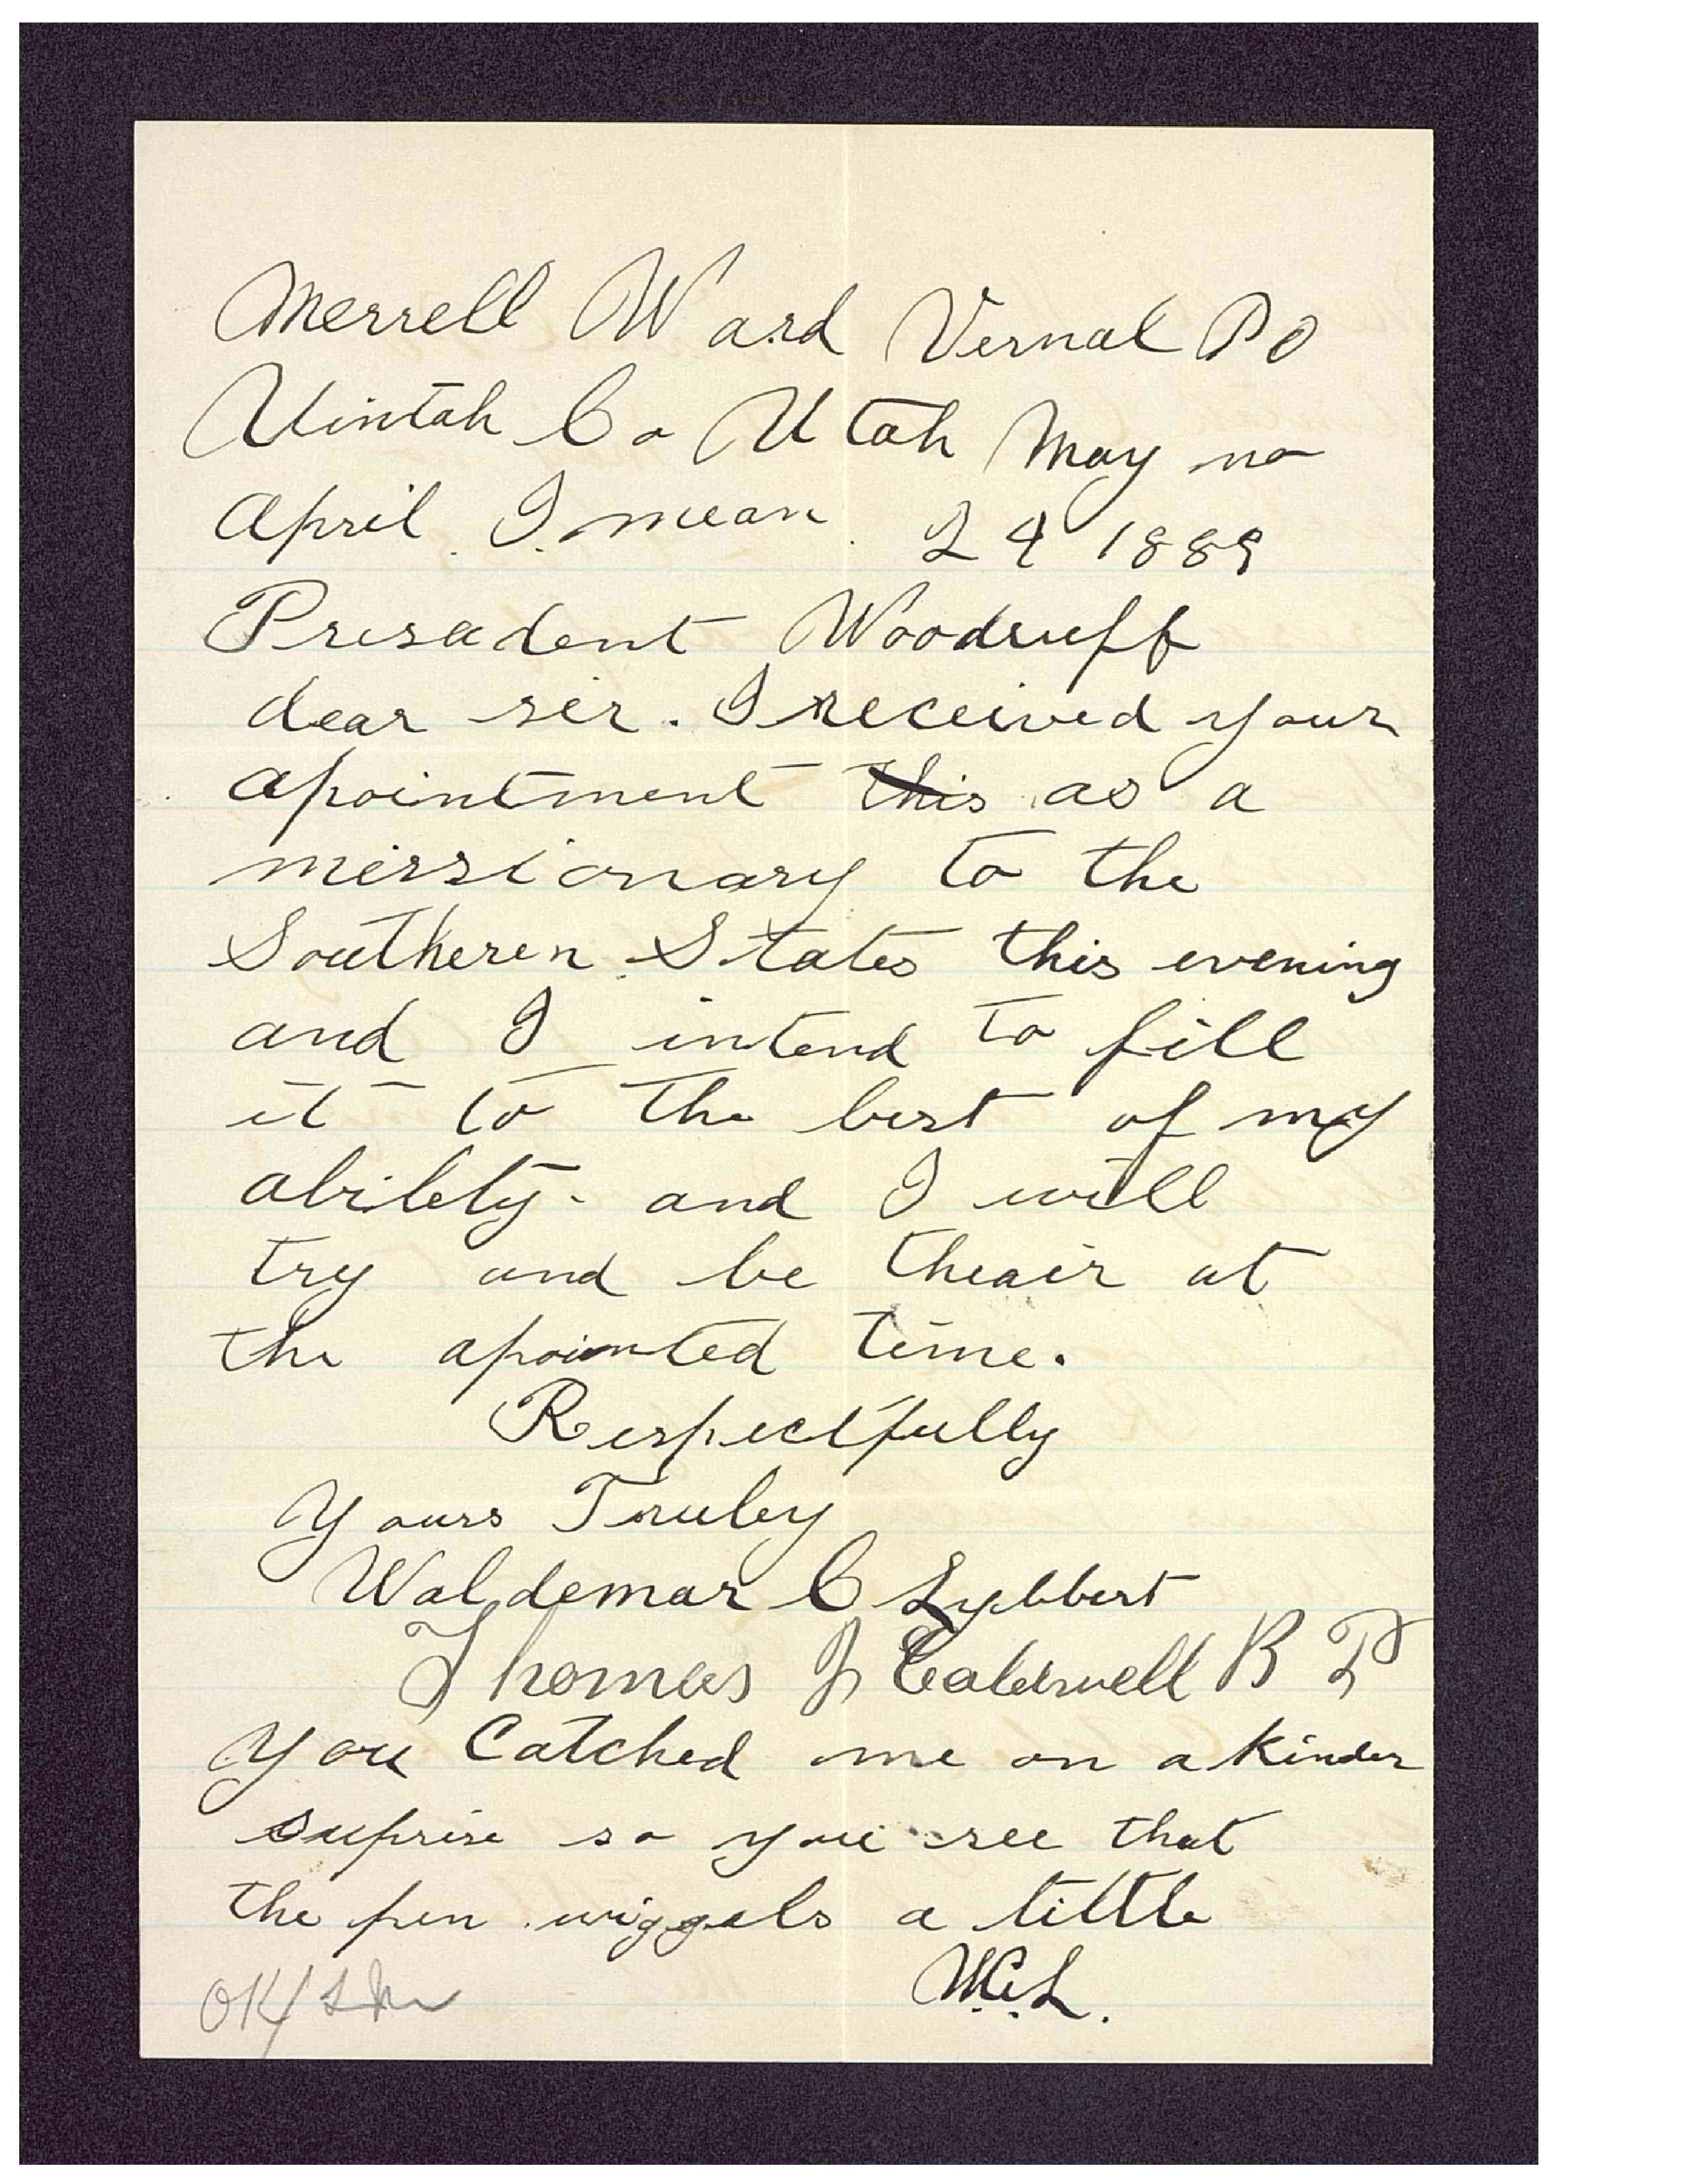 Merrell Ward Vernal PO
Uintah Co Utah May no
April I mean 24 1889
Presadent Woodruff
dear sir. I received your
apointment this as a
missionary to the
Southeren States this evening
and I intend to fill
it to the best of my
abilety - and I will
try and be theair at
the apointed time.
Respectfully
Yours Truley
Waldemar C Lybbert
Thomas J Caldwell B P
You Catched me on a kinder
suprise so you see that
the pen wiggels a little
W.C.L.
OK/